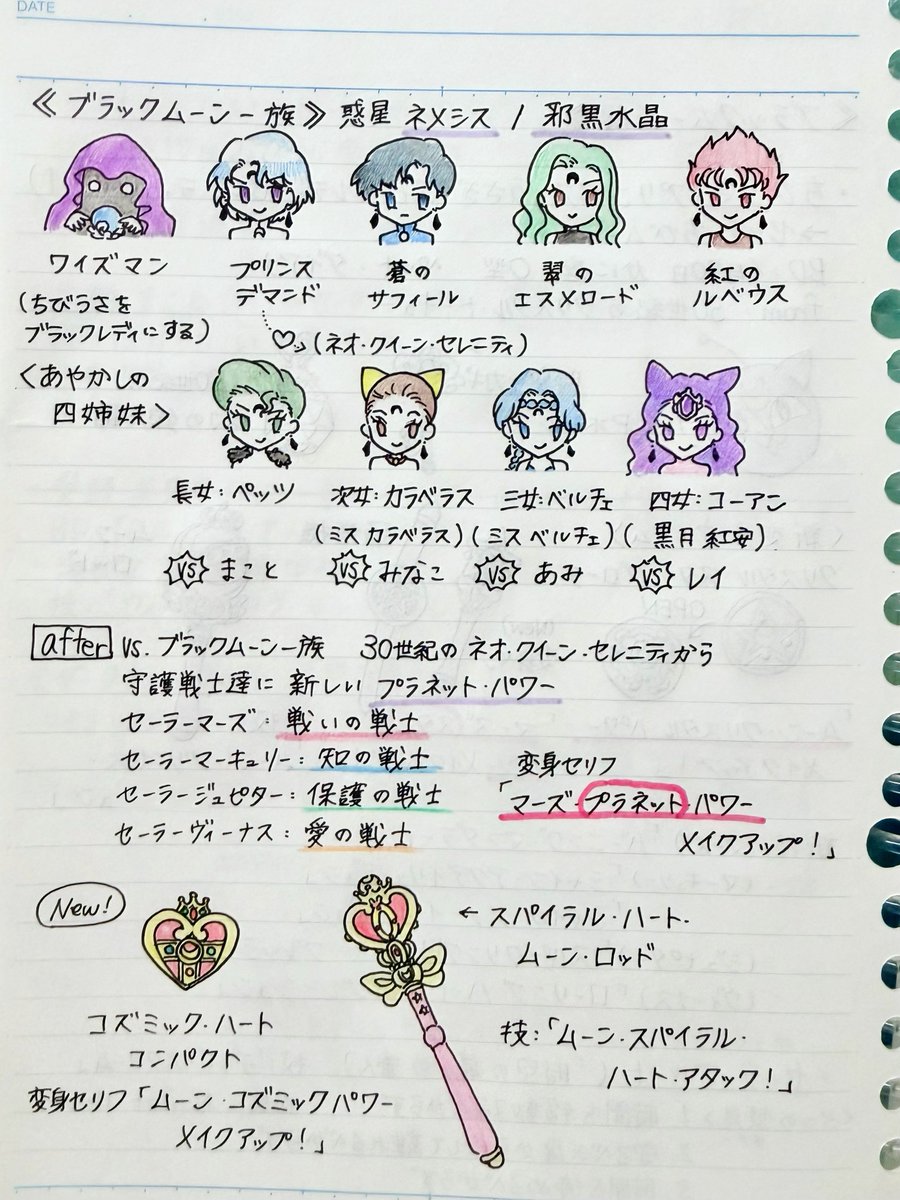 DATE
≪ブラックムーン一族≫ 惑星 ネメシス / 邪黒水晶
ワイズマン
(ちびうさを
ブラックレディにする)
プリンス
デマンド
♡→(ネオ・クイーン・セレニティ)
蒼の
サフィール
翠の
エスメロード
紅の
ルベウス
<あやかしの
四姉妹>
長女:ペッツ
VS まこと
次女:カラベラス
(ミス カラベラス)
VS みなこ
三女:ベルチェ
(ミス ベルチェ)
VS あみ
四女:コーアン
(黒月 紅安)
VS レイ
after vs. ブラックムーン一族 30世紀の ネオ・クイーン・セレニティから
守護戦士達に 新しい プラネット・パワー
セーラーマーズ:戦いの戦士
セーラーマーキュリー:知の戦士
セーラージュピター:保護の戦士
セーラーヴィーナス:愛の戦士
変身セリフ
「マーズ・プラネット・パワー
メイクアップ!」
New!
コズミック・ハート
コンパクト
変身セリフ「ムーン・コズミックパワー
メイクアップ!」
← スパイラル・ハート・
ムーン・ロッド
技:「ムーン・スパイラル・
ハート・アタック!」